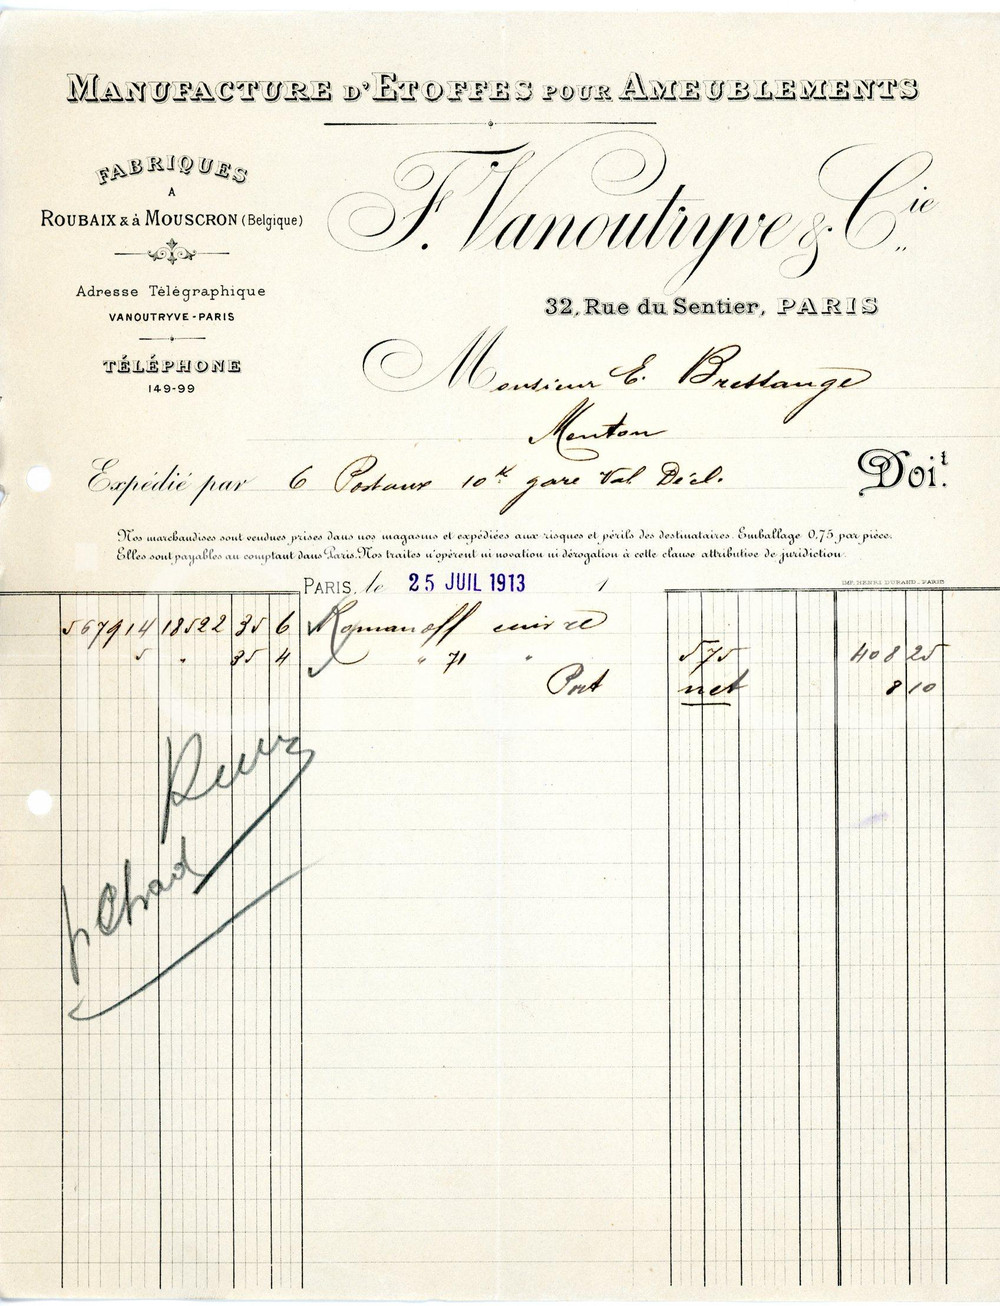 MANUFACTURE D'ETOFFES POUR AMEUBLEMENTS
FABRIQUES
A
ROUBAIX & à MOUSCRON (Belgique)
Adresse Télégraphique
VANOUTRYVE-PARIS
TÉLÉPHONE
149-99
F. Vanoutryve & Cie
32, Rue du Sentier, PARIS
Monsieur E. Brettange
Menton
Expédié par 6 Postaux 10k gare Val. Décl. Doit
Nos marchandises sont vendues prises dans nos magasins et expédiées aux risques et périls des destinataires. Emballage 0,75 par pièce.
Elles sont payables au comptant dans Paris. Nos traites n'opèrent ni novation ni dérogation à cette clause attributive de juridiction.
PARIS, le 25 JUIL 1913 1
IMP. HENRI DURAND, PARIS
567914 18522 35 6 Romanoff cuivre
5 " 35 4 " 71 " 575 408 25
Port net 8 10